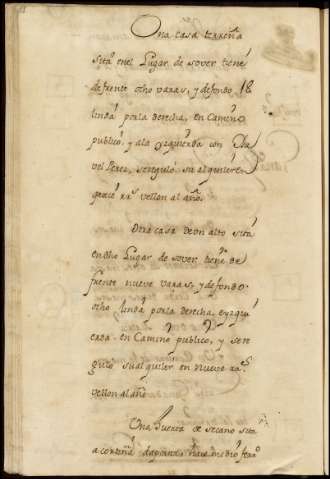 Una casa terreña
sita enel Lugar de sover tiene
de frente ocho varas, y defondo 18
linda por la derecha, en Camino
publico, y ala yzquierda con
vel Perez, seregulò su alquiler en
rs vellon al año.
Otra casa de un alto sita
en dho Lugar de sover, tiene de
frente nueve varas, y defondo
ocho linda por la derecha, e yzqui
erda en Camino publico, y sere
gulo su alquiler en nueve rs
vellon al año
Una huerta de secano sita